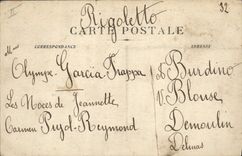 Rigoletto
32
CARTE POSTALE
CORRESPONDANCE
ADRESSE
Mme
Olympe Garcia Frappa
D. Burdino
Les Noces de Jeannette
V. Blouse
Carmen Puyd-Reymond
Demoulin
Delmas